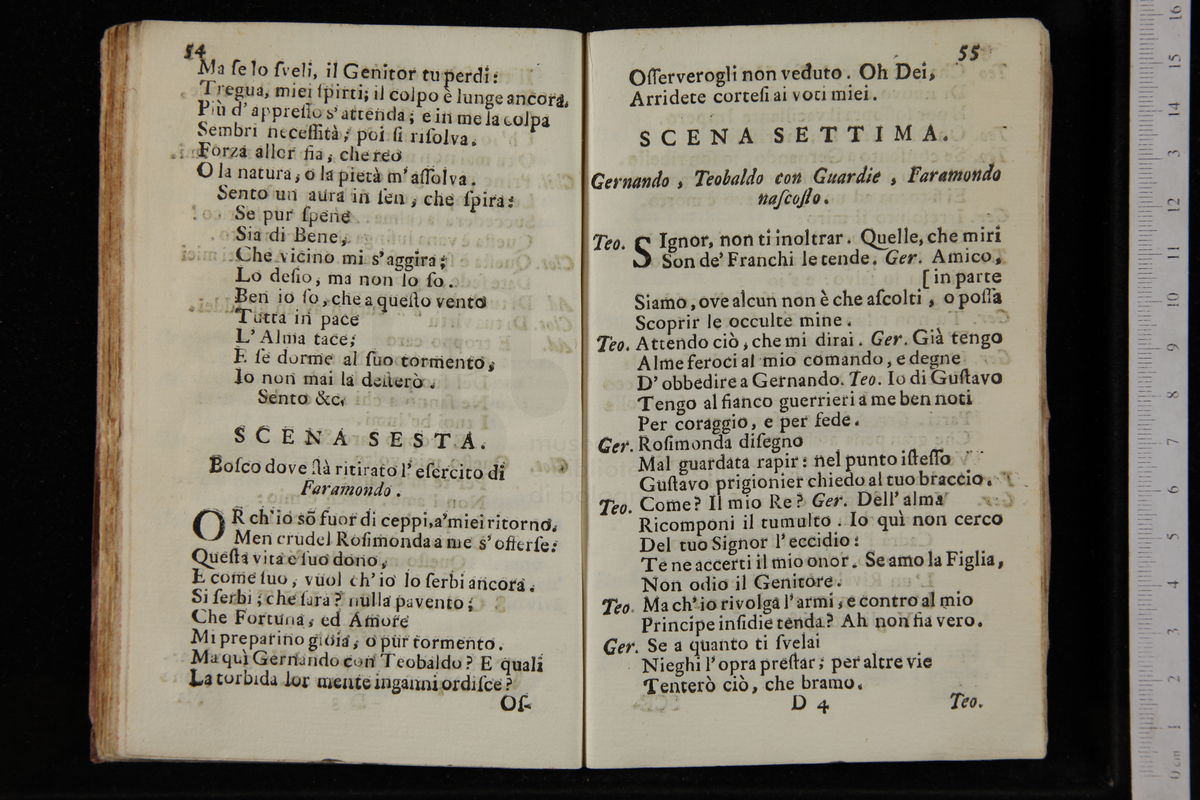 54
Ma ſe lo ſveli, il Genitor tu perdi:
Tregua, miei ſpirti; il colpo è lunge ancora.
Più d' appreſſo s' attenda; e in me la colpa
Sembri neceſſità; poi ſi riſolva.
Forza allor fia, che reo
O la natura, o la pietà m' aſſolva.
Sento un aura in ſen, che ſpira:
Se pur ſpene
Sia di Bene,
Che vicino mi s' aggira;
Lo deſio, ma non lo ſo.
Ben io ſo, che a queſto vento
Tutta in pace
L' Alma tace;
E ſe dorme al ſuo tormento,
Io non mai la deſterò.
Sento &c.
SCENA SESTA.
Boſco dove ſtà ritirato l' eſercito di
Faramondo.
OR ch' io sõ fuor di ceppi, a' miei ritorno.
Men crudel Roſimonda a me s' offerſe:
Queſta vita è ſuo dono,
E come ſuo, vuol ch' io lo ſerbi ancora.
Si ſerbi; che ſara? nulla pavento;
Che Fortuna, ed Amore
Mi preparino gioia, o pur tormento.
Ma quì Gernando con Teobaldo? E quali
La torbida lor mente inganni ordiſce?
Oſ-
55
Oſſerverogli non veduto. Oh Dei,
Arridete corteſi ai voti miei.
SCENA SETTIMA.
Gernando, Teobaldo con Guardie, Faramondo
naſcoſto.
Teo. SIgnor, non ti inoltrar. Quelle, che miri
Son de' Franchi le tende. Ger. Amico,
[in parte
Siamo, ove alcun non è che aſcolti, o poſſa
Scoprir le occulte mine.
Teo. Attendo ciò, che mi dirai. Ger. Già tengo
Alme feroci al mio comando, e degne
D' obbedire a Gernando. Teo. Io di Guſtavo
Tengo al fianco guerrieri a me ben noti
Per coraggio, e per fede.
Ger. Roſimonda diſegno
Mal guardata rapir: nel punto iſteſſo
Guſtavo prigionier chiedo al tuo braccio.
Teo. Come? Il mio Re? Ger. Dell' alma
Ricomponi il tumulto. Io quì non cerco
Del tuo Signor l' eccidio:
Te ne accerti il mio onor. Se amo la Figlia,
Non odio il Genitore.
Teo. Ma ch' io rivolga l' armi, e contro al mio
Principe inſidie tenda? Ah non fia vero.
Ger. Se a quanto ti ſvelai
Nieghi l' opra preſtar; per altre vie
Tenterò ciò, che bramo.
D 4 Teo.
0 cm 1 2 3 4 5 6 7 8 9 10 11 12 13 14 15 16